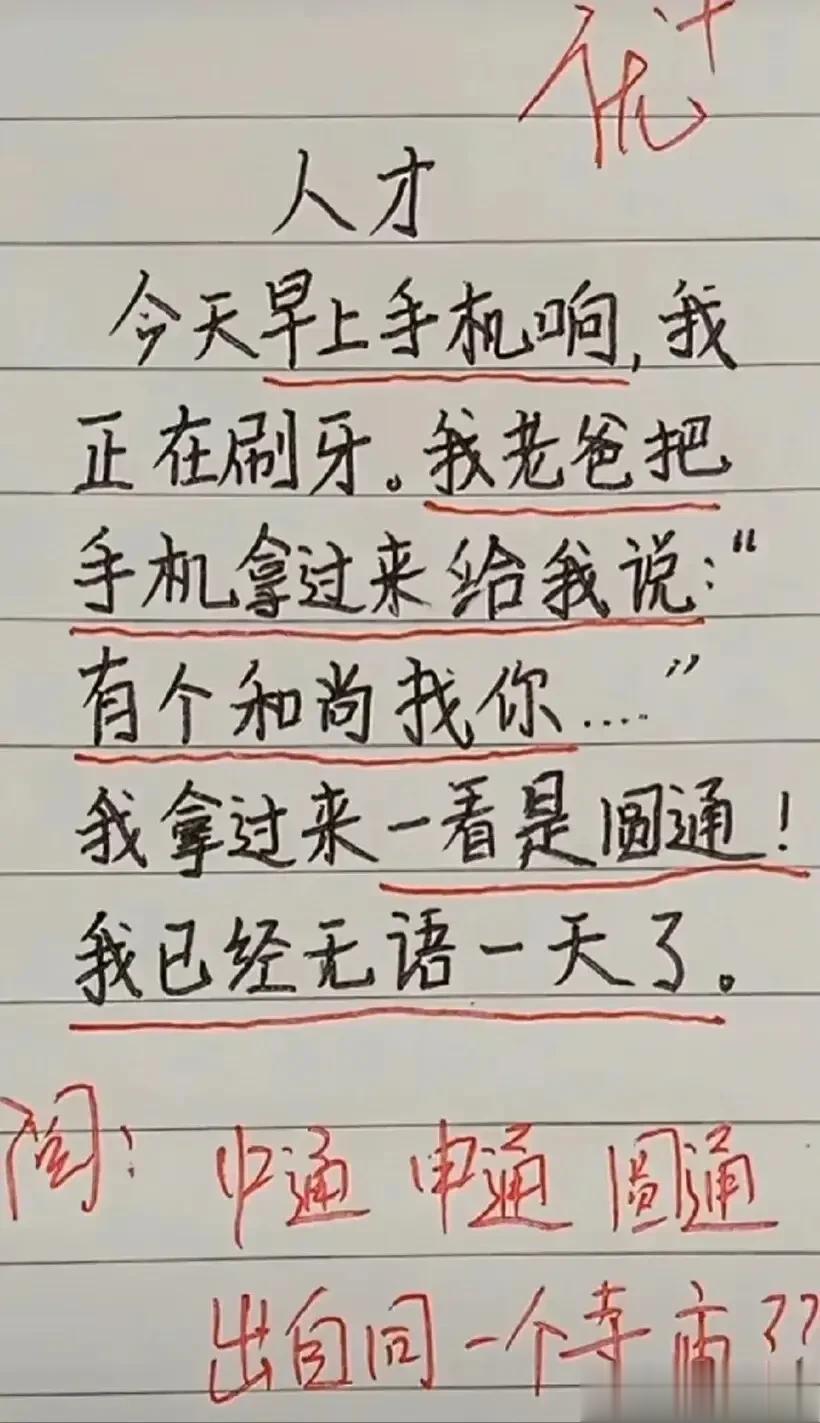 优+
人才
今天早上手机响,我
正在刷牙。我老爸把
手机拿过来给我说:“
有个和尚找你....”
我拿过来一看是圆通!
我已经无语一天了。
阅: 中通 申通 圆通
出自同一个寺庙??